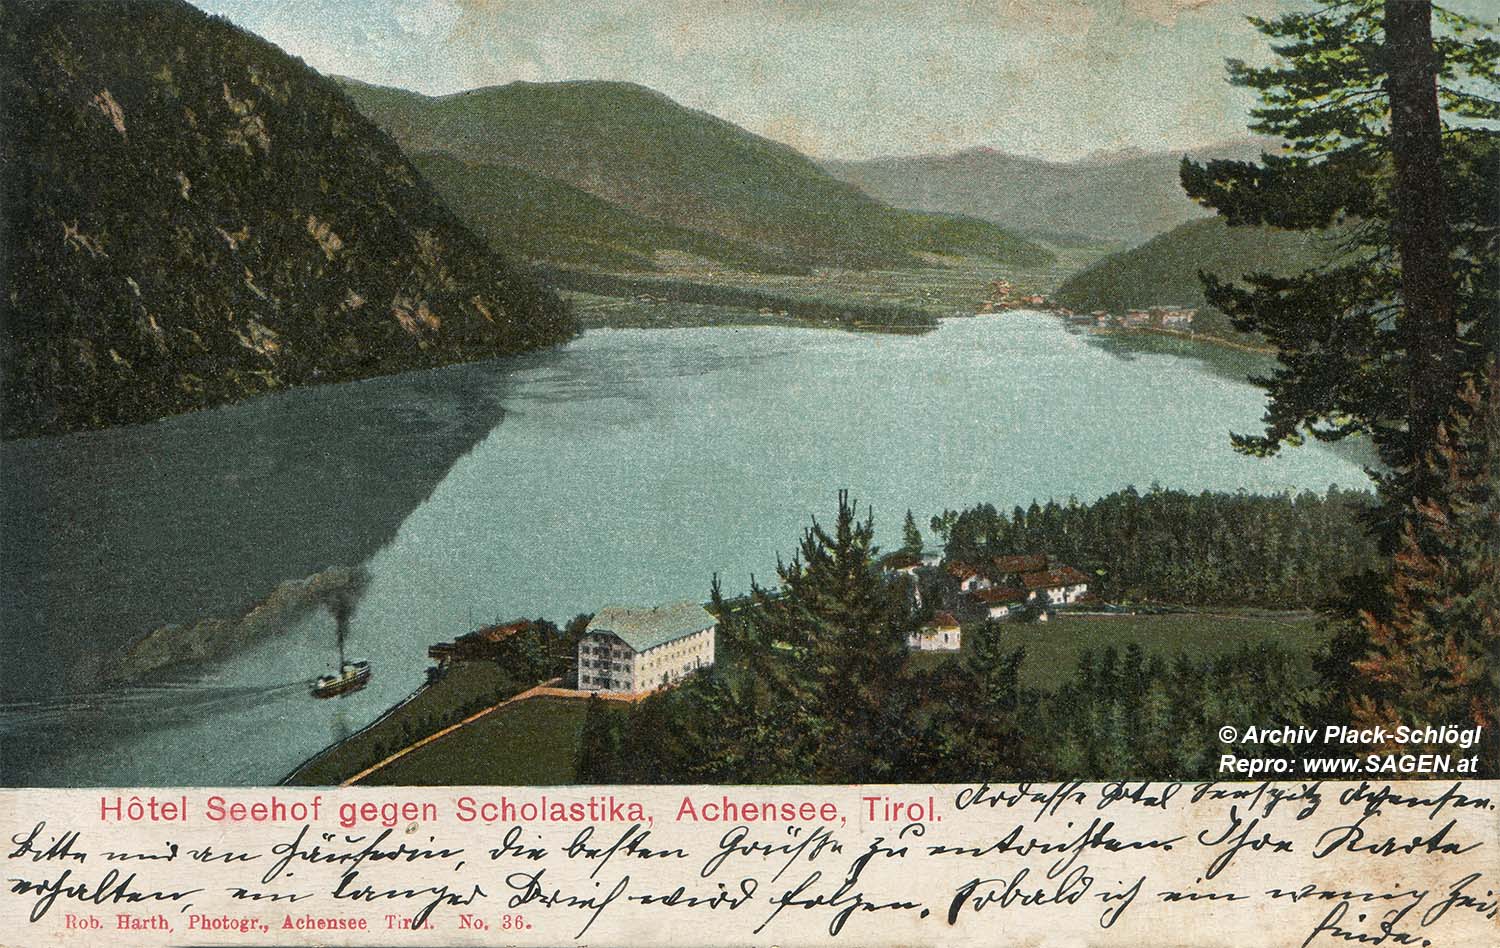 © Archiv Plack-Schlögl
Repro: www.SAGEN.at
Hôtel Seehof gegen Scholastika, Achensee, Tirol.
Adresse Hotel Seespitz Achensee.
Bitte mir an Häuserin, die besten Grüße zu entrichten. Ihre Karte
erhalten, ein langer Brief wird folgen. Sobald ich ein wenig Zeit
finde.
Rob. Harth, Photogr., Achensee Tirol. No. 36.